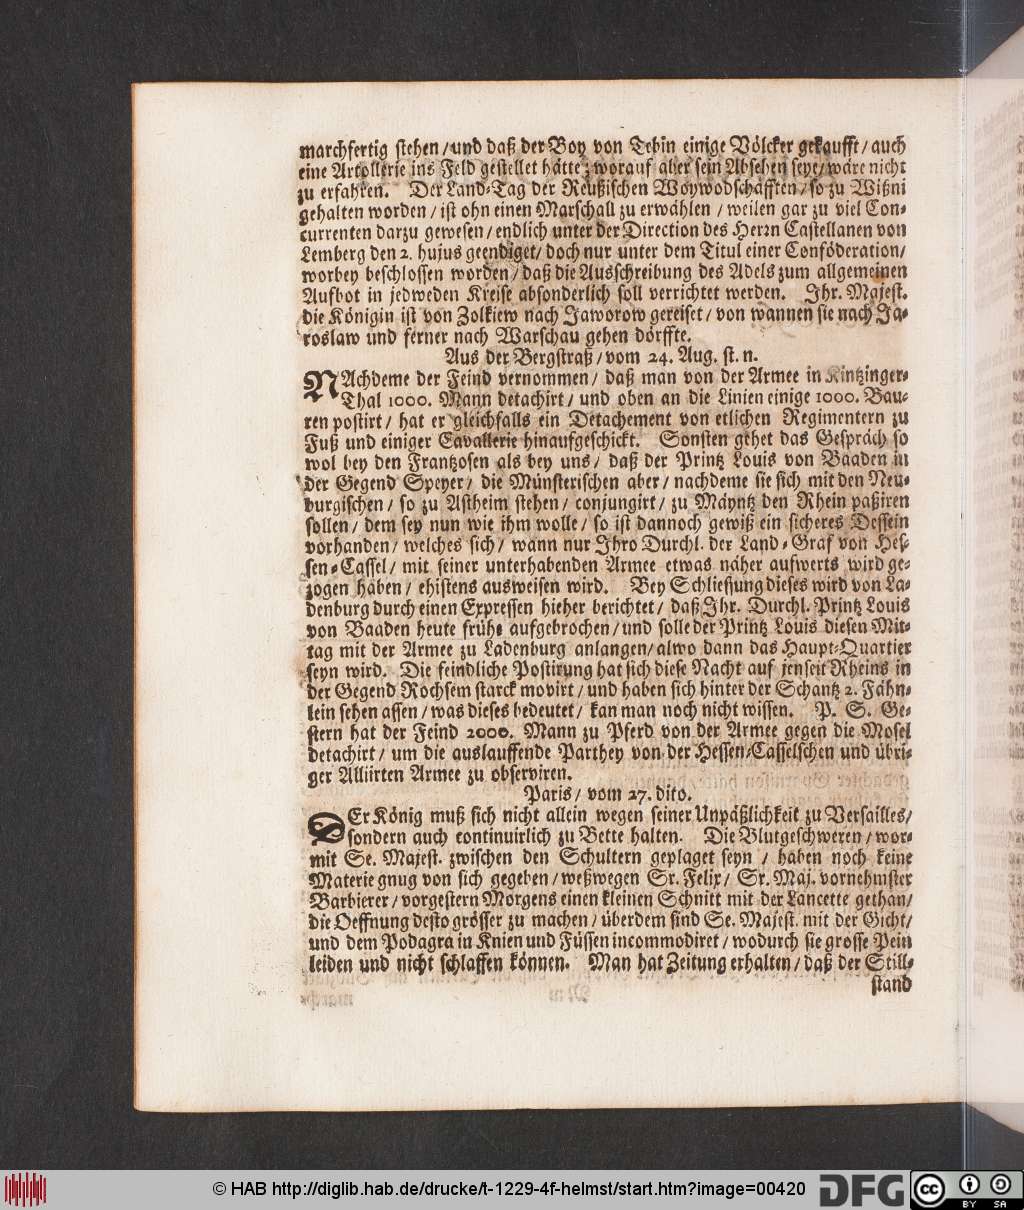 marchfertig stehen / und daß der Boy von Tebin einige Völcker gekaufft / auch
eine Artollerie ins Feld gestellet hätte ; worauf aber sein Absehen seye / wäre nicht
zu erfahren. Der Land-Tag der Reußischen Woywodschafften / so zu Wißni
gehalten worden / ist ohn einen Marschall zu erwählen / weilen gar zu viel Con-
currenten darzu gewesen / endlich unter der Direction des Herrn Castellanen von
Lemberg den 2. hujus geendiget / doch nur unter dem Titul einer Conföderation /
worbey beschlossen worden / daß die Ausschreibung des Adels zum allgemeinen
Aufbot in jedweden Kreise absonderlich soll verrichtet werden. Ihr. Majest.
die Königin ist von Zolkiew nach Jaworow gereiset / von wannen sie nach Ja-
roslaw und ferner nach Warschau gehen dörffte.
Aus der Bergstraß / vom 24. Aug. st. n.
NAchdeme der Feind vernommen / daß man von der Armee in Kintzinger-
Thal 1000. Mann detachirt / und oben an die Linien einige 1000. Bau-
ren postirt / hat er gleichfalls ein Detachement von etlichen Regimentern zu
Fuß und einiger Cavallerie hinaufgeschickt. Sonsten gehet das Gespräch so
wol bey den Frantzosen als bey uns / daß der Printz Louis von Baaden in
der Gegend Speyer / die Münsterischen aber / nachdeme sie sich mit den Neu-
burgischen / so zu Astheim stehen / conjungirt / zu Mäyntz den Rhein paßiren
sollen / dem sey nun wie ihm wolle / so ist dannoch gewiß ein sicheres Dessein
vorhanden / welches sich / wann nur Ihro Durchl. der Land-Graf von Hes-
sen-Cassel / mit seiner unterhabenden Armee etwas näher aufwerts wird ge-
zogen haben / ehistens ausweisen wird. Bey Schliessung dieses wird von La-
denburg durch einen Expressen hieher berichtet / daß Ihr. Durchl. Printz Louis
von Baaden heute frühe aufgebrochen / und solle der Printz Louis diesen Mit-
tag mit der Armee zu Ladenburg anlangen / alwo dann das Haupt-Quartier
seyn wird. Die feindliche Postirung hat sich diese Nacht auf jenseit Rheins in
der Gegend Rochsem starck movirt / und haben sich hinter der Schantz 2. Fähn-
lein sehen assen / was dieses bedeutet / kan man noch nicht wissen. P. S. Ge-
stern hat der Feind 2000. Mann zu Pferd von der Armee gegen die Mosel
detachirt / um die auslauffende Parthey von der Hessen-Casselschen und übri-
ger Alliirten Armee zu observiren.
Paris / vom 27. dito.
DEr König muß sich nicht allein wegen seiner Unpäßlichkeit zu Versailles /
sondern auch continuirlich zu Bette halten. Die Blutgeschweren / wor-
mit Se. Majest. zwischen den Schultern geplaget seyn / haben noch keine
Materie gnug von sich gegeben / weßwegen Sr. Felix / Sr. Maj. vornehmster
Barbierer / vorgestern Morgens einen kleinen Schnitt mit der Lancette gethan /
die Oeffnung desto grösser zu machen / überdem sind Se. Majest. mit der Gicht /
und dem Podagra in Knien und Füssen incommodiret / wodurch sie grosse Pein
leiden und nicht schlaffen können. Man hat Zeitung erhalten / daß der Still-
stand
© HAB http://diglib.hab.de/drucke/t-1229-4f-helmst/start.htm?image=00420 DFG cc BY SA